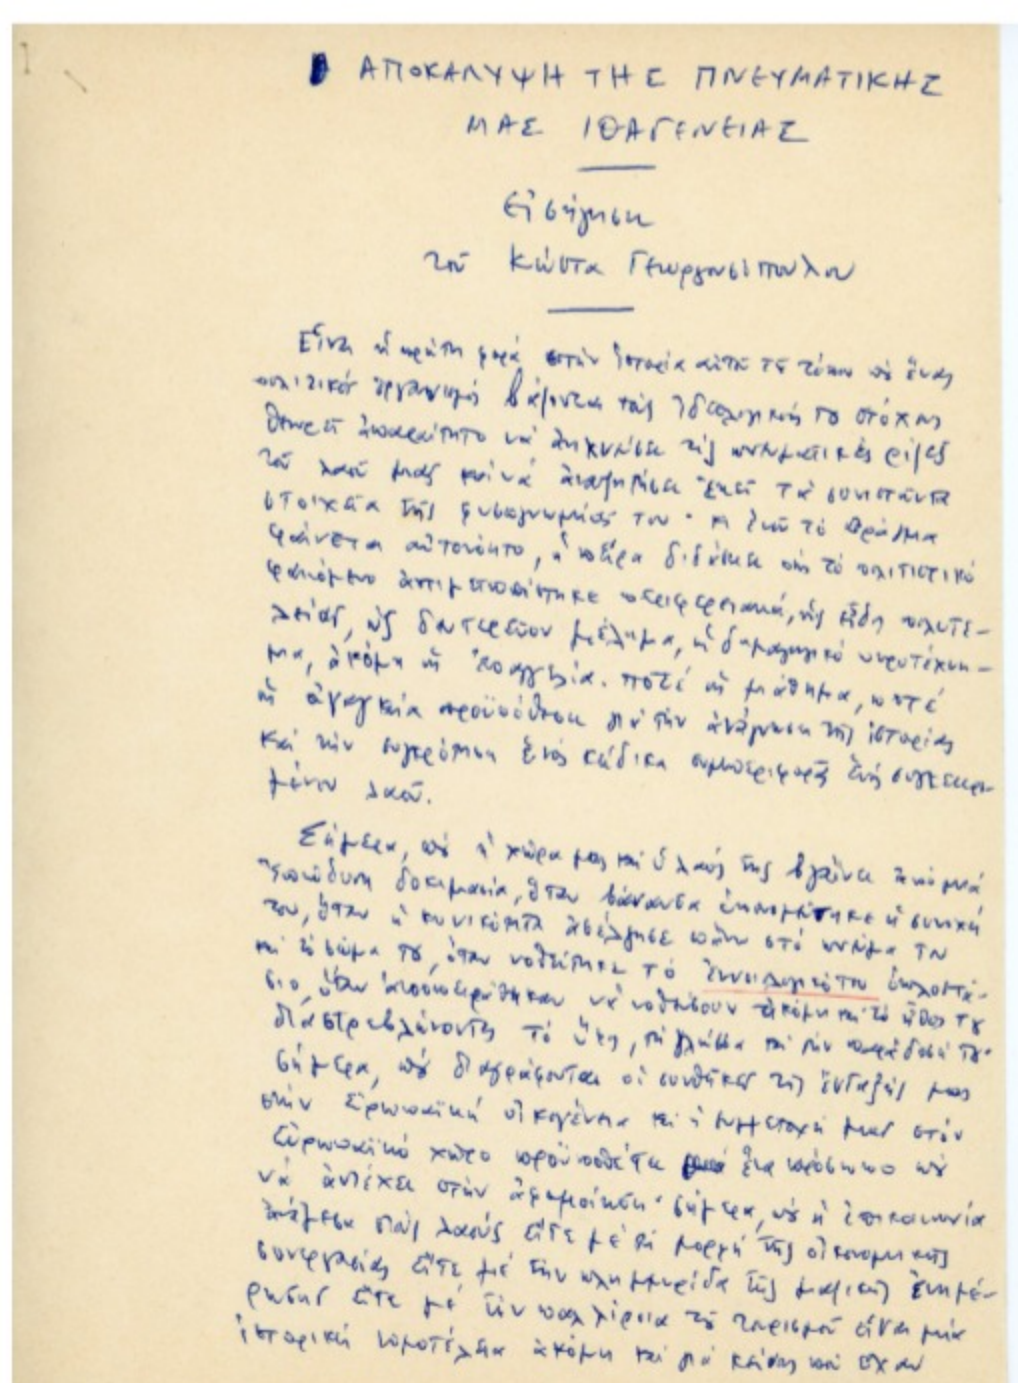 ΑΠΟΚΑΛΥΨΗ ΤΗΣ ΠΝΕΥΜΑΤΙΚΗΣ
ΜΑΣ ΙΘΑΓΕΝΕΙΑΣ
Εἰσήγηση
τοῦ Κώστα Γεωργουσόπουλου
Εἶναι ἡ πρώτη φορά στήν ἱστορία αὐτοῦ τοῦ τόπου πού ἕνας
πολιτικός ὀργανισμός βάζοντας τούς ἰδεολογικούς του στόχους
θεωρεῖ ἀπαραίτητο νά ἀνιχνεύσει τίς πνευματικές ρίζες
τοῦ λαοῦ μας καί νά ἀναζητήσει ἐκεῖ τά συνιστῶντα
στοιχεῖα τῆς φυσιογνωμίας του· κι ἐνῶ τό πρᾶγμα
φαίνεται αὐτονόητο, ἡ πεῖρα διδάσκει πώς τό πολιτιστικό
φαινόμενο ἀντιμετωπίστηκε περιφερειακά, ὡς εἶδη πολυτε-
λείας, ὡς δευτερεῦον μέλημα, ὡς δημαγωγικό πυροτέχνη-
μα, ἀκόμη ὡς ἐπαγγελία. ποτέ ὡς μάθημα, ποτέ
ὡς ἀναγκαία προϋπόθεση γιά τήν ἀνάγνωση τῆς ἱστορίας
καί τήν συγκρότηση ἑνός κώδικα συμπεριφορᾶς ἑνός συγκεκρι-
μένου λαοῦ.
Σήμερα, πού ἡ χώρα μας καί ὁ λαός της βγαίνει ἀπό μιά
ἐπώδυνη δοκιμασία, ὅταν βάναυσα ὑπονομεύτηκε ἡ συνοχή
του, ὅταν ἡ κυνικότητα ἀσέλγησε πάνω στό πνεῦμα του
καί τό σῶμα του, ὅταν νοθεύτηκε τό ἐννοιολογικό του ὁπλοστά-
σιο, ὅταν ἀποπειράθηκαν νά νοθεύσουν ἀκόμη καί τό ἦθος του
διαστρεβλώνοντας τό ὕφος, τή γλώσσα καί τήν παράδοσή του·
σήμερα, πού διαγράφονται οἱ συνθῆκες τῆς ἔνταξής μας
στήν εὐρωπαϊκή οἰκογένεια καί ἡ συμμετοχή μας στόν
εὐρωπαϊκό χῶρο προϋποθέτει ἕνα πρόσωπο πού
νά ἀντέχει στήν ἀφομοίωση· σήμερα, πού ἡ ἐπικοινωνία
ἀνάμεσα στούς λαούς εἴτε μέ τή μορφή τῆς οἰκονομικῆς
συνεργασίας εἴτε μέ τήν πλημμυρίδα τῆς μαζικῆς ἐνημέ-
ρωσης εἴτε μέ τήν παλίρροια τοῦ τουρισμοῦ εἶναι μιά
ἱστορική νομοτέλεια ἀκόμη καί γιά κείνους πού εἶχαν